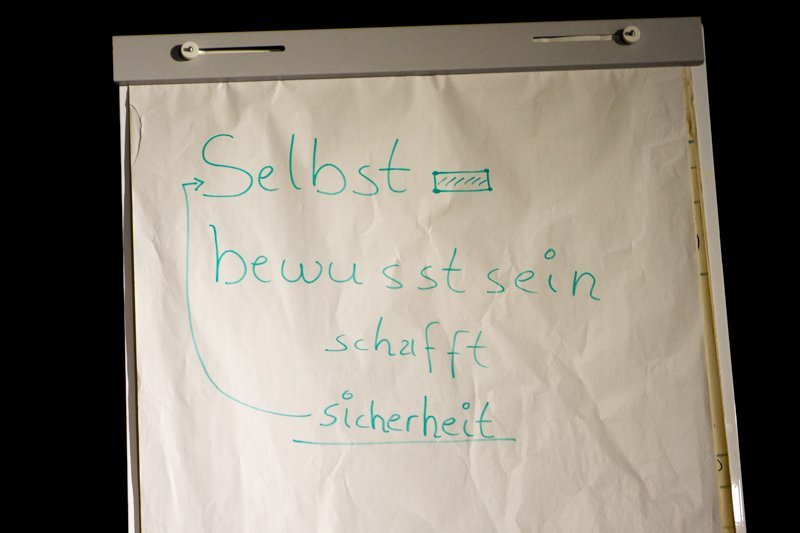 Selbst
bewusst sein
schafft
sicherheit